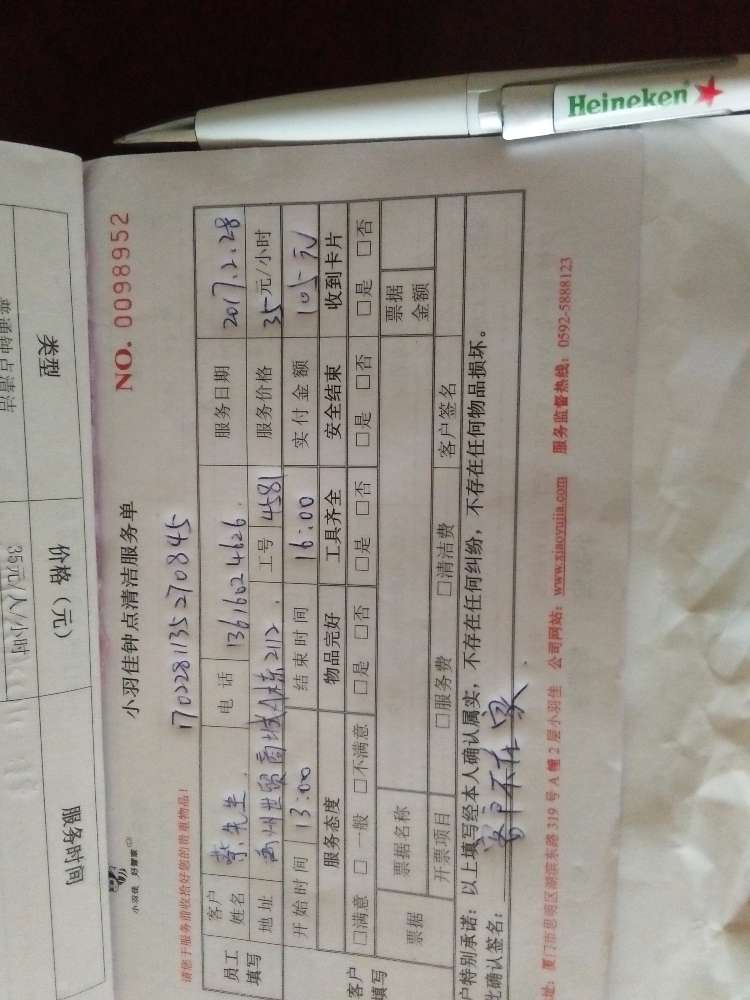 Heineken
类型
价格（元）
服务时间
35元/人/小时
小羽佳 好管家
小羽佳钟点清洁服务单
NO. 0098952
请您于服务前收拾好您的贵重物品！
170228113527 0845
员工填写
客户姓名 蔡先生 电话 13616024626 服务日期 2017.2.28
地址 禹州世贸商城A栋2112 工号 4581 服务价格 35元/小时
开始时间 13:00 结束时间 16:00 实付金额 105元
客户填写
服务态度 物品完好 工具齐全 安全结束 收到卡片
□满意 □一般 □不满意 □是 □否 □是 □否 □是 □否 □是 □否
票据 票据名称 票据金额
开票项目 □服务费 □清洁费 客户签名
户特别承诺：以上填写经本人确认属实，不存在任何纠纷，不存在任何物品损坏。
比确认签名： 客户不在家
址：厦门市思明区湖滨东路 319 号 A 幢 2 层小羽佳 公司网站：www.xiaoyujia.com 服务监督热线：0592-5888123